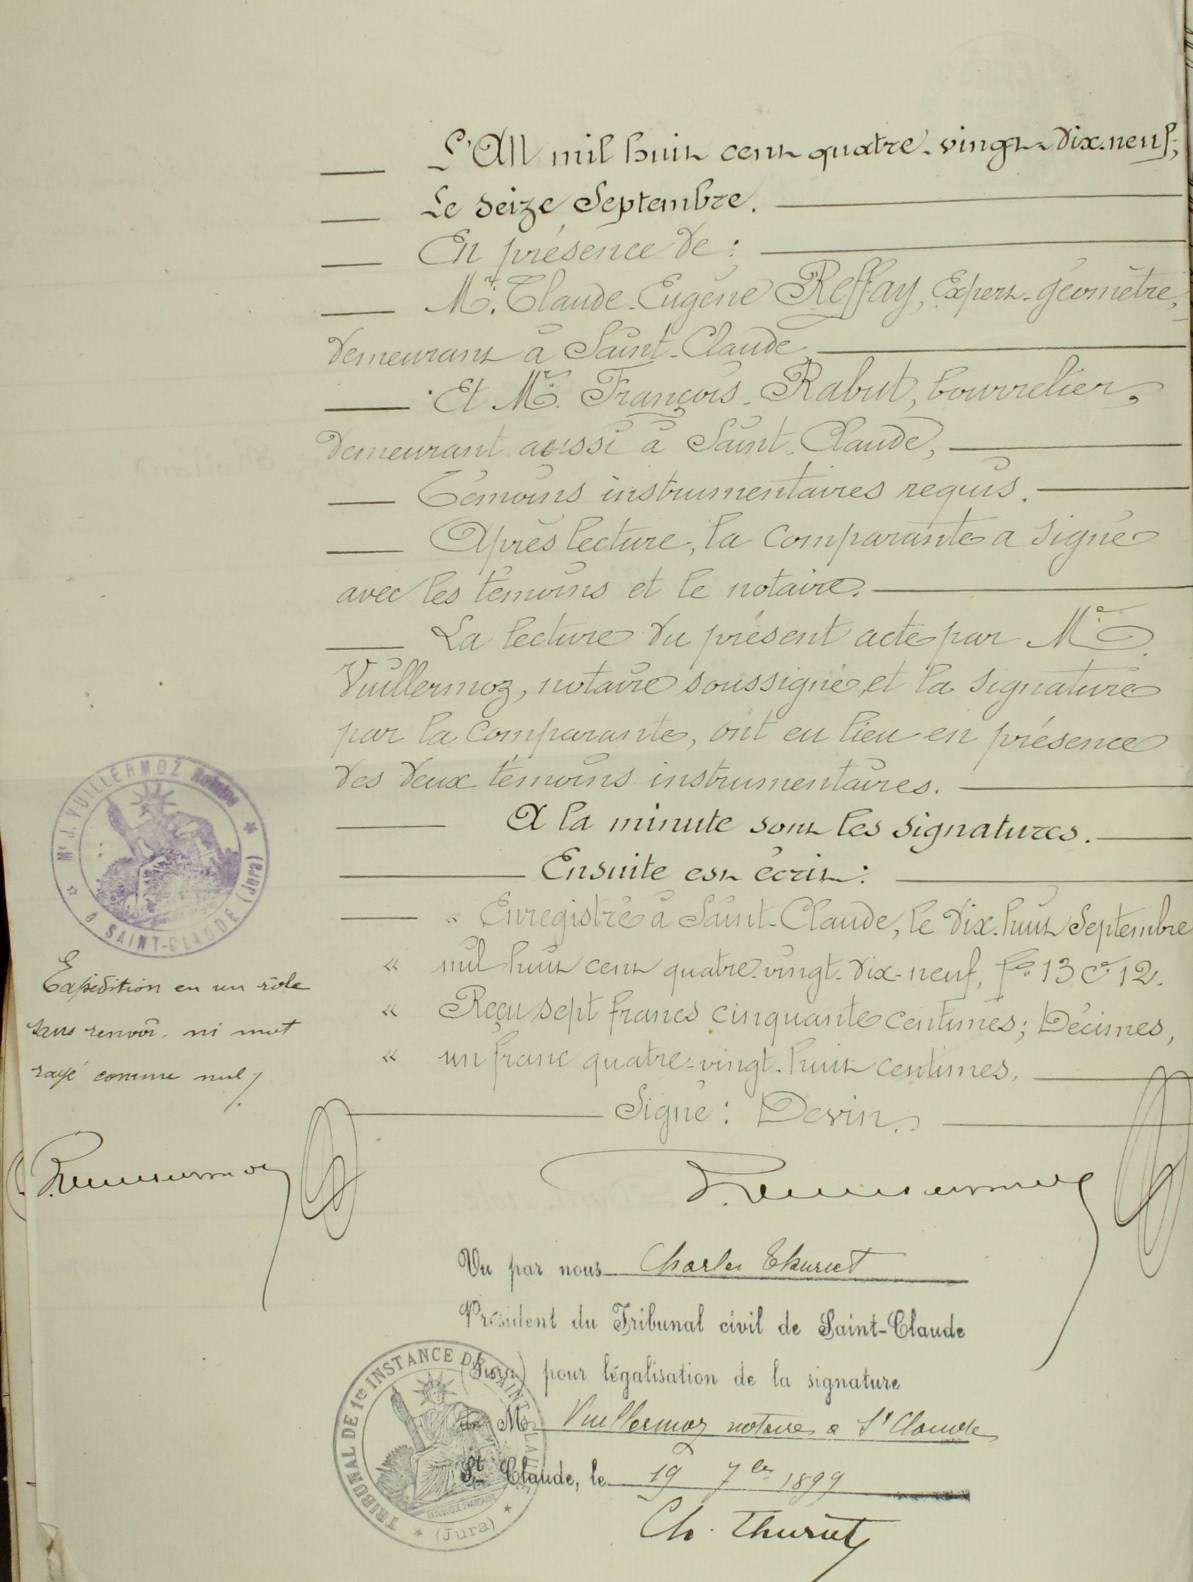 L'An mil huit cent quatre-vingt-dix-neuf,
Le seize Septembre.
En présence de :
Mr. Claude-Eugène Reffay, Expert-géomètre,
demeurant à Saint-Claude,
Et Mr. François Rabut, bourrelier,
demeurant aussi à Saint-Claude,
Témoins instrumentaires requis.
Après lecture, la comparante a signé
avec les témoins et le notaire.
La lecture du présent acte par Me.
Vuillermoz, notaire soussigné, et la signature
par la comparante, ont eu lieu en présence
des deux témoins instrumentaires.
A la minute sont les signatures.
Ensuite est écrit :
" Enregistré à Saint-Claude, le dix-huit Septembre
" mil huit cent quatre-vingt-dix-neuf, fo 13 ce 12.
" Reçu sept francs cinquante centimes; Décimes,
" un franc quatre-vingt-huit centimes.
Signé : Devin.
Me J. VUILLERMOZ Notaire
à SAINT-CLAUDE (Jura)
Expédition en un rôle
sans renvoi, ni mot
rayé comme nul
Vu par nous Charles Thuriet
Président du Tribunal civil de Saint-Claude
(Jura) pour légalisation de la signature
de Me Vuillermoz notaire à St Claude
St Claude, le 19 7bre 1899
Ch. Thuriet
TRIBUNAL DE 1re INSTANCE DE SAINT-CLAUDE
(Jura)